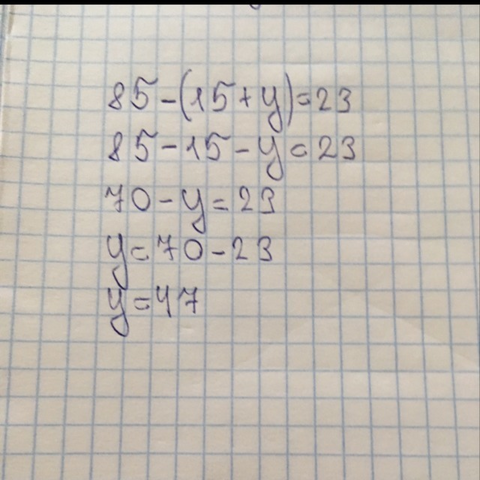 85-(15+y)=23
85-15-y=23
70-y=23
y=70-23
y=47